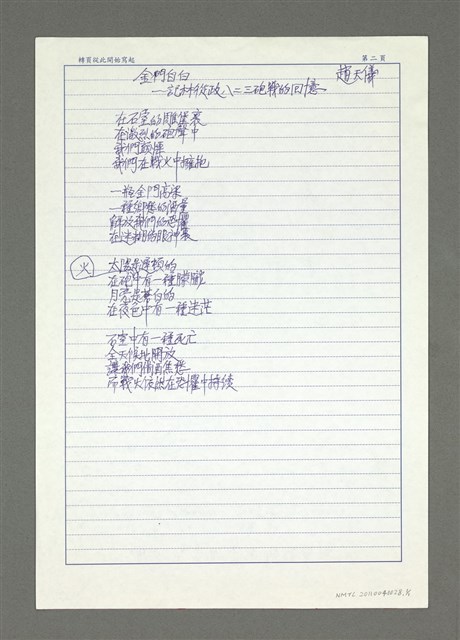 轉頁從此開始寫起
第二頁
金門自白
趙天儀
—記林從政八二三砲戰的回憶—
在石室的碉堡裏
在激烈的砲聲中
我們顫慄
我們在戰火中擁抱
一瓶金門高粱
一種鄉愁的
我們的恐懼
在迷糊的眼神裏
火
太陽是
在硝中有一種朦朧
月亮是蒼白的
在夜色中有一種迷茫
石室中有一種死亡
全天候地開放
讓我們
而戰火依然在恐懼中持續